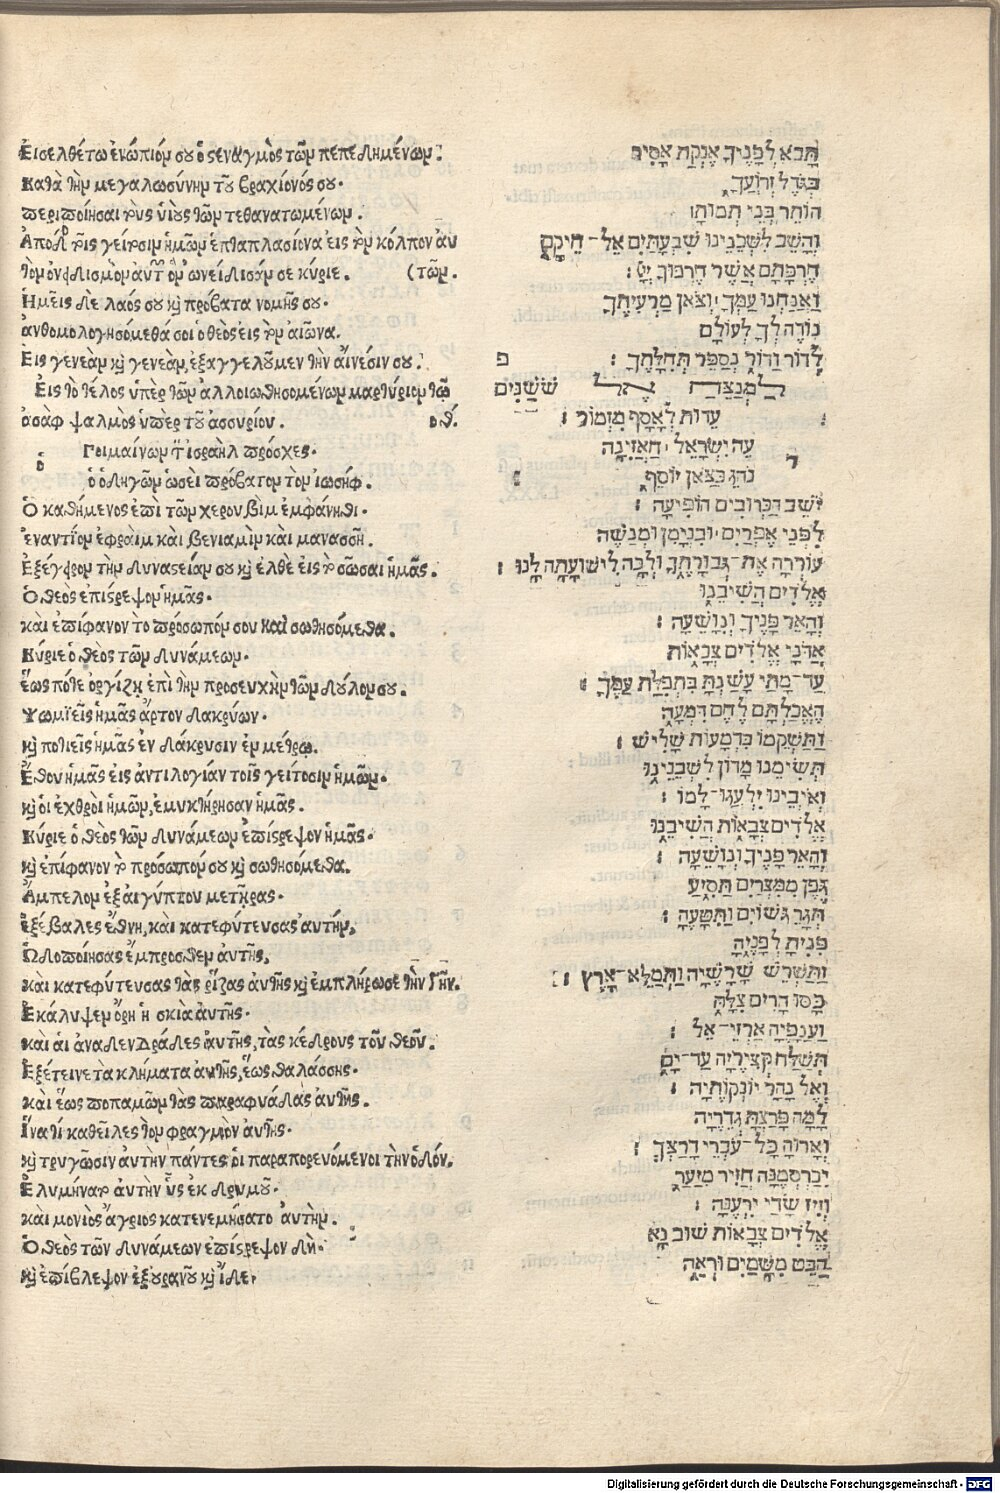 Εἰσελθέτω ἐνώπιόν σου ὁ στεναγμὸς τῶν πεπεδημένων:
κατὰ τὴν μεγαλωσύνην τοῦ βραχίονός σου.
περιποίησαι τοὺς υἱοὺς τῶν τεθανατωμένων.
Ἀπόδος τοῖς γείτοσιν ἡμῶν ἑπταπλασίονα εἰς τὸν κόλπον αὐ
τὸν ὀνειδισμὸν αὐτῶν ὃν ὠνείδισάν σε κύριε. (τῶν.
Ἡμεῖς δὲ λαός σου καὶ πρόβατα νομῆς σου.
ἀνθομολογησόμεθά σοι ὁ θεὸς εἰς τὸν αἰῶνα.
Εἰς γενεὰν καὶ γενεὰν, ἐξαγγελοῦμεν τὴν αἴνεσίν σου.
Εἰς τὸ τέλος ὑπὲρ τῶν ἀλλοιωθησομένων μαρτύριον τῷ
ἀσὰφ ψαλμὸς ὑπὲρ τοῦ ἀσσυρίου. οθ.
Ποιμαίνων τὸν ἰσραὴλ πρόσχες.
ὁ
ὁ ὁδηγῶν ὡσεὶ πρόβατον τὸν ἰωσήφ.
Ὁ καθήμενος ἐπὶ τῶν χερουβὶμ ἐμφάνηθι.
ἐναντίον ἐφραὶμ καὶ βενιαμὶν καὶ μανασσῆ.
Ἐξέγειρον τὴν δυναστείαν σου καὶ ἐλθὲ εἰς τὸ σῶσαι ἡμᾶς.
Ὁ θεὸς ἐπίστρεψον ἡμᾶς.
καὶ ἐπίφανον τὸ πρόσωπόν σου καὶ σωθησόμεθα.
Κύριε ὁ θεὸς τῶν δυνάμεων.
ἕως πότε ὀργίζῃ ἐπὶ τὴν προσευχὴν τῶν δούλων σου.
Ψωμιεῖς ἡμᾶς ἄρτον δακρύων.
καὶ ποτιεῖς ἡμᾶς ἐν δάκρυσιν ἐν μέτρῳ.
Ἔθου ἡμᾶς εἰς ἀντιλογίαν τοῖς γείτοσιν ἡμῶν.
καὶ οἱ ἐχθροὶ ἡμῶν, ἐμυκτήρησαν ἡμᾶς.
Κύριε ὁ θεὸς τῶν δυνάμεων ἐπίστρεψον ἡμᾶς.
καὶ ἐπίφανον τὸ πρόσωπόν σου καὶ σωθησόμεθα.
Ἄμπελον ἐξ αἰγύπτου μετῇρας.
ἐξέβαλες ἔθνη, καὶ κατεφύτευσας αὐτήν.
Ὡδοποίησας ἔμπροσθεν αὐτῆς.
καὶ κατεφύτευσας τὰς ῥίζας αὐτῆς καὶ ἐμπλήρωσε τὴν γῆν.
Ἐκάλυψεν ὄρη ἡ σκιὰ αὐτῆς.
καὶ αἱ ἀναδενδράδες αὐτῆς, τὰς κέδρους τοῦ θεοῦ.
Ἐξέτεινε τὰ κλήματα αὐτῆς, ἕως θαλάσσης.
καὶ ἕως ποταμῶν τὰς παραφυάδας αὐτῆς.
Ἱνατί καθεῖλες τὸν φραγμὸν αὐτῆς.
καὶ τρυγῶσιν αὐτὴν πάντες οἱ παραπορευόμενοι τὴν ὁδόν.
Ἐλυμήνατο αὐτὴν ὗς ἐκ δρυμοῦ.
καὶ μονιὸς ἄγριος κατενεμήσατο αὐτήν.
Ὁ θεὸς τῶν δυνάμεων ἐπίστρεψον δή.
καὶ ἐπίβλεψον ἐξ οὐρανοῦ καὶ ἴδε.
תָּבֹא לְפָנֶיךָ אֶנְקַת אָסִיר
כְּגֹדֶל זְרוֹעֲךָ
הוֹתֵר בְּנֵי תְמוּתָה
וְהָשֵׁב לִשְׁכֵנֵינוּ שִׁבְעָתַיִם אֶל־חֵיקָם
חֶרְפָּתָם אֲשֶׁר חֵרְפוּךָ יְיָ:
וַאֲנַחְנוּ עַמְּךָ וְצֹאן מַרְעִיתֶךָ
נוֹדֶה לְּךָ לְעוֹלָם
לְדוֹר וָדוֹר נְסַפֵּר תְּהִלָּתֶךָ: פ
לַמְנַצֵּחַ אֶל שֹׁשַׁנִּים
עֵדוּת לְאָסָף מִזְמוֹר:
רֹעֵה יִשְׂרָאֵל הַאֲזִינָה
נֹהֵג כַּצֹּאן יוֹסֵף
יֹשֵׁב הַכְּרוּבִים הוֹפִיעָה:
לִפְנֵי אֶפְרַיִם וּבִנְיָמִן וּמְנַשֶּׁה
עוֹרְרָה אֶת־גְּבוּרָתֶךָ וּלְכָה לִישׁוּעָתָה לָּנוּ:
אֱלֹהִים הֲשִׁיבֵנוּ
וְהָאֵר פָּנֶיךָ וְנִוָּשֵׁעָה:
אֲדֹנָי אֱלֹהִים צְבָאוֹת
עַד־מָתַי עָשַׁנְתָּ בִּתְפִלַּת עַמֶּךָ:
הֶאֱכַלְתָּם לֶחֶם דִּמְעָה
וַתַּשְׁקֵמוֹ בִּדְמָעוֹת שָׁלִישׁ:
תְּשִׂימֵנוּ מָדוֹן לִשְׁכֵנֵינוּ
וְאֹיְבֵינוּ יִלְעֲגוּ־לָמוֹ:
אֱלֹהִים צְבָאוֹת הֲשִׁיבֵנוּ
וְהָאֵר פָּנֶיךָ וְנִוָּשֵׁעָה:
גֶּפֶן מִמִּצְרַיִם תַּסִּיעַ
תְּגָרֵשׁ גּוֹיִם וַתִּטָּעֶהָ:
פִּנִּיתָ לְפָנֶיהָ
וַתַּשְׁרֵשׁ שָׁרָשֶׁיהָ וַתְּמַלֵּא־אָרֶץ:
כָּסּוּ הָרִים צִלָּהּ
וַעֲנָפֶיהָ אַרְזֵי־אֵל:
תְּשַׁלַּח קְצִירֶיהָ עַד־יָם
וְאֶל נָהָר יוֹנְקוֹתֶיהָ:
לָמָּה פָּרַצְתָּ גְדֵרֶיהָ
וְאָרוּהָ כָּל־עֹבְרֵי דָרֶךְ:
יְכַרְסְמֶנָּה חֲזִיר מִיָּעַר
וְזִיז שָׂדַי יִרְעֶנָּה:
אֱלֹהִים צְבָאוֹת שׁוּב נָא
הַבֵּט מִשָּׁמַיִם וּרְאֵה
Digitalisierung gefördert durch die Deutsche Forschungsgemeinschaft - DFG